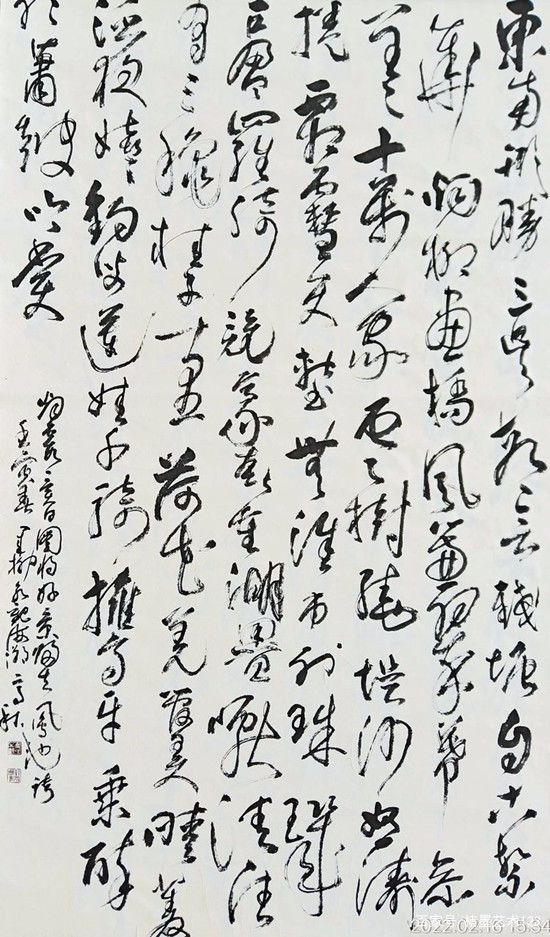 東南形勝三吴都會錢塘自古繁
華烟柳畫橋風簾翠幕参
差十萬人家雲樹繞堤沙怒濤
捲霜雪天塹無涯市列珠璣
户盈羅綺競豪奢重湖疊巘清佳
有三秋桂子十里荷花羌管弄晴菱
泛夜嬉嬉釣叟蓮娃千騎擁高牙乘醉
聽簫鼓吟賞
烟霞異日圖將好景歸去鳳池誇
壬寅春柳永望海潮
2022.02.16 15:34